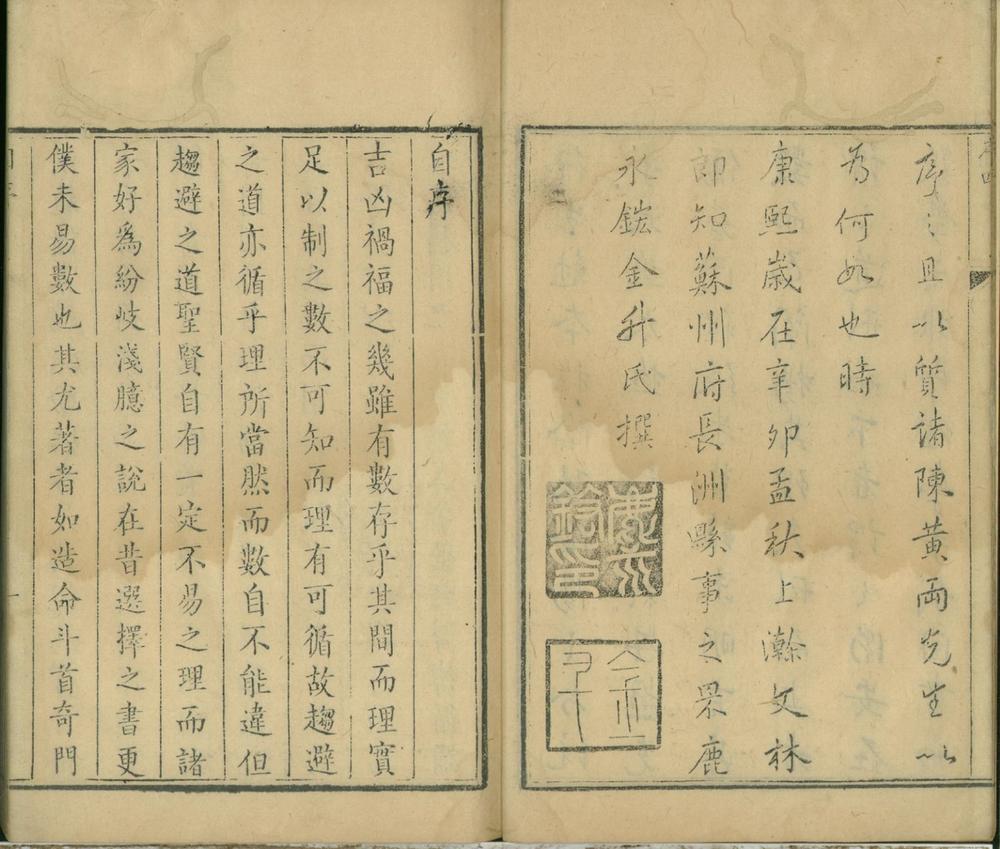 序四
序〻且以質諸陳黃兩先生以
為何如也時
康熙歲在辛卯孟秋上瀚文林
郎知蘇州府長洲縣事之罘鹿
永鋐金升氏撰
鹿永鋐印
自序
吉凶禍福之幾雖有數存乎其間而理實
足以制之數不可知而理有可循故趨避
之道亦循乎理所當然而數自不能違但
趨避之道聖賢自有一定不易之理而諸
家好爲紛岐淺臆之說在昔選擇之書更
僕未易數也其尤著者如造命斗首奇門